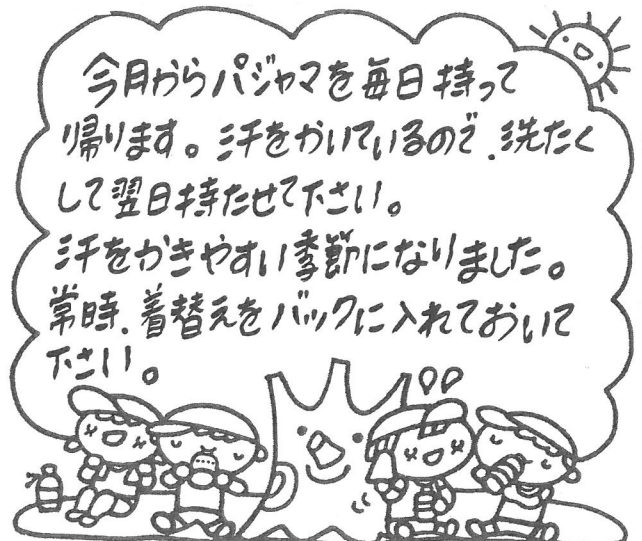 今月からパジャマを毎日持って
帰ります。汗をかいているので、洗たく
して翌日持たせて下さい。
汗をかきやすい季節になりました。
常時、着替えをバックに入れておいて
下さい。